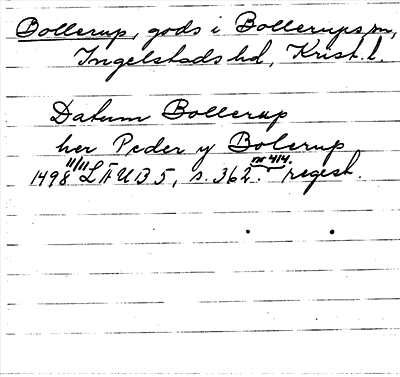 Bollerup, gods i Bollerups sn,
Ingelstads hd, Krist. l.
Datum Bollerup
her Peder y Bolerup
1498 11/11 LÄUB 5, s. 362. nr 414. regest.